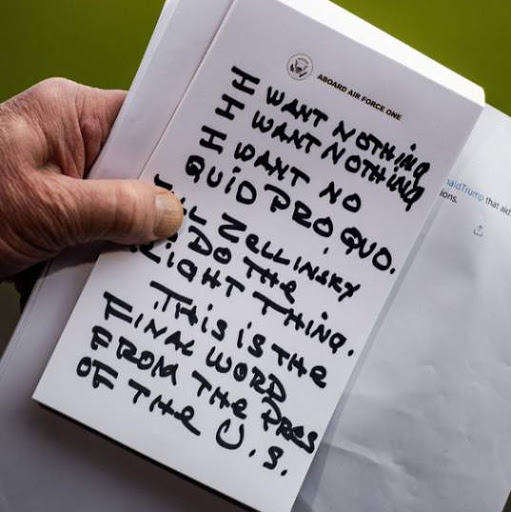 ABOARD AIR FORCE ONE
I WANT NOTHING
I WANT NOTHING
I WANT NO
QUID PRO QUO.
ZELLINSKY
DO THE
RIGHT THING.
THIS IS THE
FINAL WORD
FROM THE PRES
OF THE U.S.
naldTrump that aid
ions.